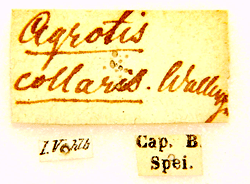 Agrotis
collaris. Walleng.
Cap. B.
Spei.